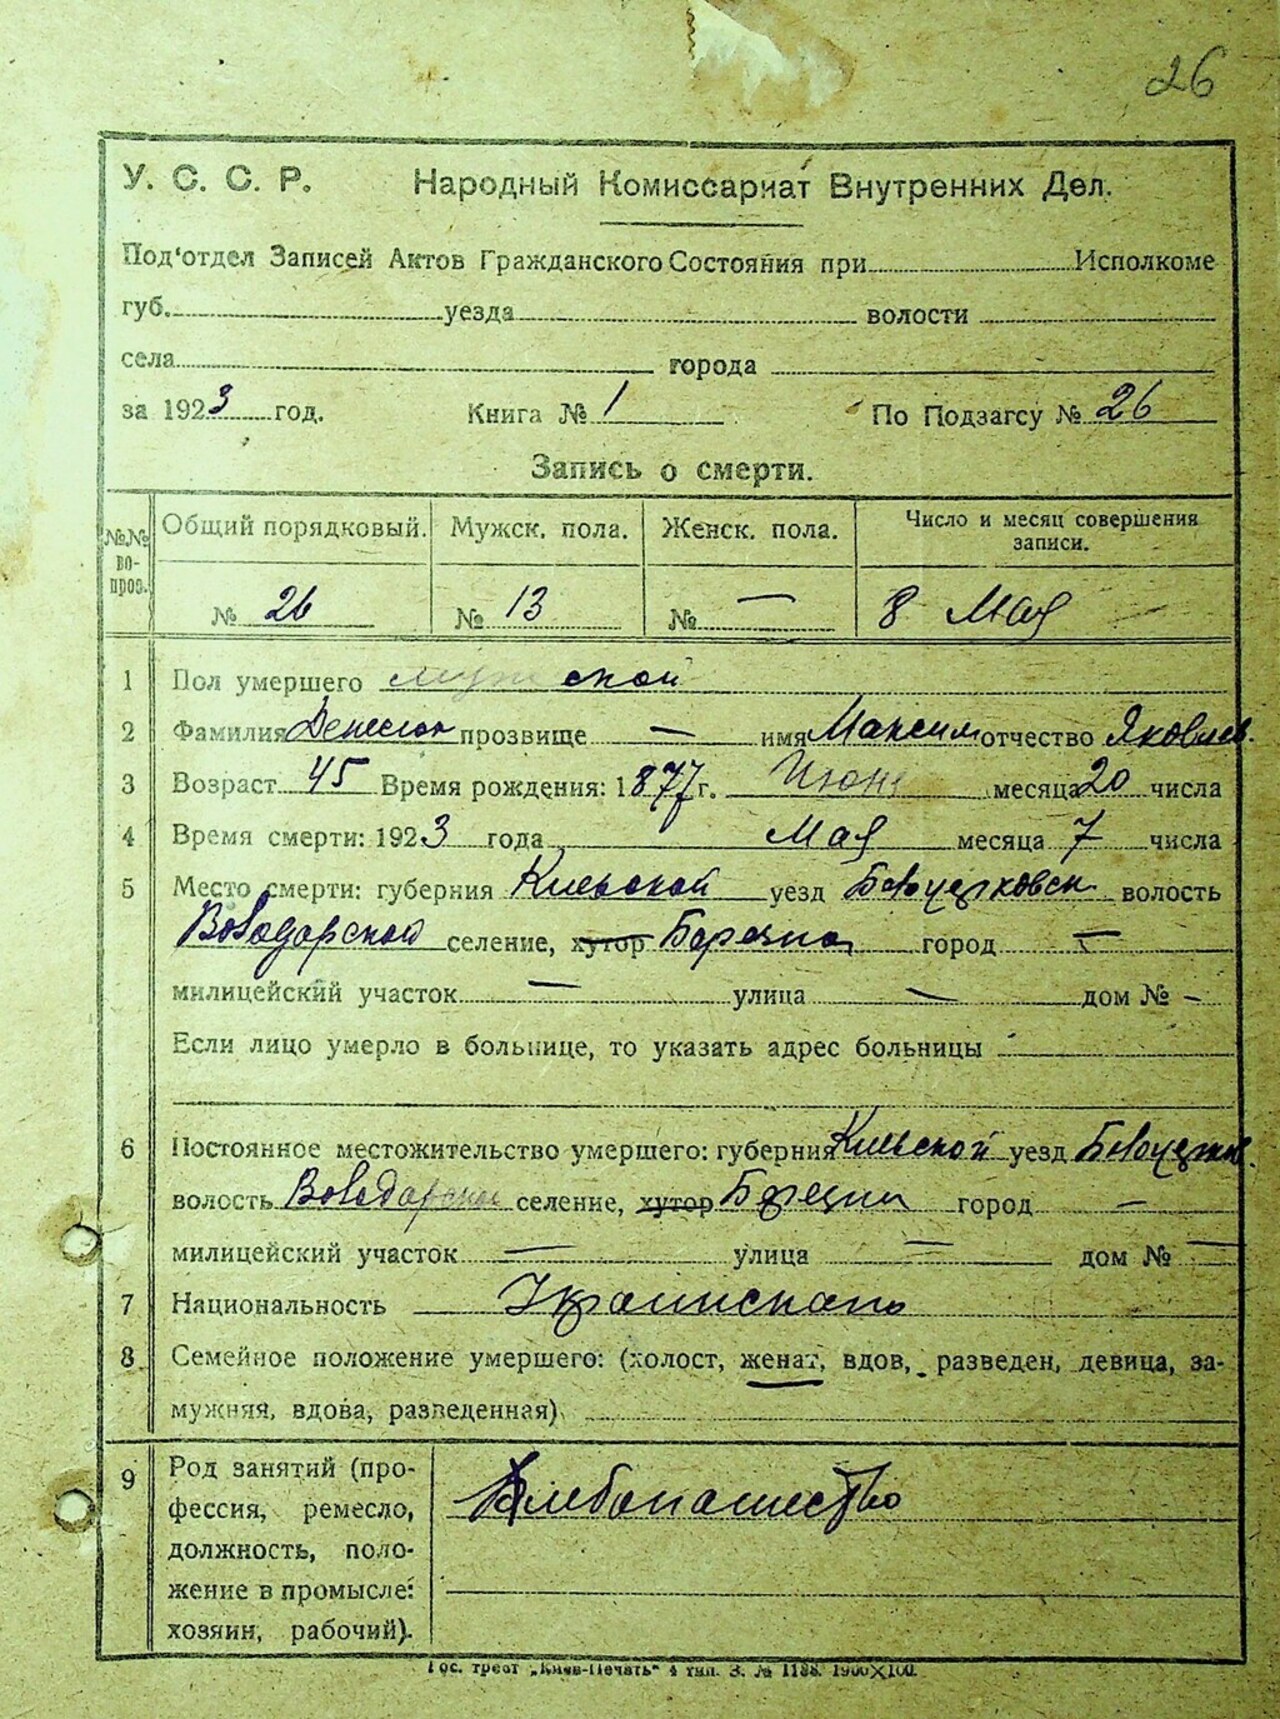 26
У. С. С. Р. Народный Комиссариат Внутренних Дел.
Под'отдел Записей Актов Гражданского Состояния при Исполкоме
губ. уезда волости
села города
за 1923 год. Книга № 1 По Подзагсу № 26
Запись о смерти.
№№ во- проз. Общий порядковый. Мужск. пола. Женск. пола. Число и месяц совершения записи.
№ 26 № 13 № — 8 Мая
1 Пол умершего мужской
2 Фамилия прозвище — имя Максим отчество Яковлев.
3 Возраст 45 Время рождения: 1877 г. Июня месяца 20 числа
4 Время смерти: 1923 года Мая месяца 7 числа
5 Место смерти: губерния Киевской уезд Белоцерковск. волость
Володарской селение, хутор город —
милицейский участок — улица — дом № —
Если лицо умерло в больнице, то указать адрес больницы
6 Постоянное местожительство умершего: губерния Киевской уезд
волость Володарской селение, хутор город —
милицейский участок — улица — дом № —
7 Национальность
8 Семейное положение умершего: (холост, женат, вдов, разведен, девица, за-
мужняя, вдова, разведенная)
9 Род занятий (про-
фессия, ремесло,
должность, поло-
жение в промысле:
хозяин, рабочий).
Хлебопашество
Гос. трест „Киев-Печать" 4 тип. З. № 1188. 1900×100.